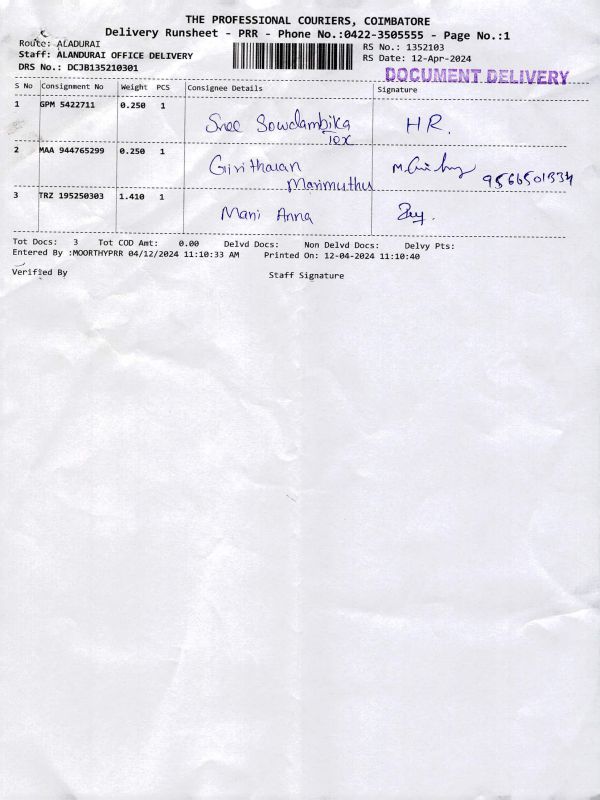 THE PROFESSIONAL COURIERS, COIMBATORE
Delivery Runsheet - PRR - Phone No.:0422-3505555 - Page No.:1
Route: ALADURAI
RS No.: 1352103
Staff: ALANDURAI OFFICE DELIVERY
RS Date: 12-Apr-2024
DRS No.: DCJB135210301
DOCUMENT DELIVERY
S No Consignment No Weight PCS Consignee Details Signature
1 GPM 5422711 0.250 1
Sree Sowdambika HR.
Tex
2 MAA 944765299 0.250 1
Giritharan
Marimuthu
3 TRZ 195250303 1.410 1
Mani Anna
Tot Docs: 3 Tot COD Amt: 0.00 Delvd Docs: Non Delvd Docs: Delvy Pts:
Entered By :MOORTHYPRR 04/12/2024 11:10:33 AM Printed On: 12-04-2024 11:10:40
Verified By Staff Signature